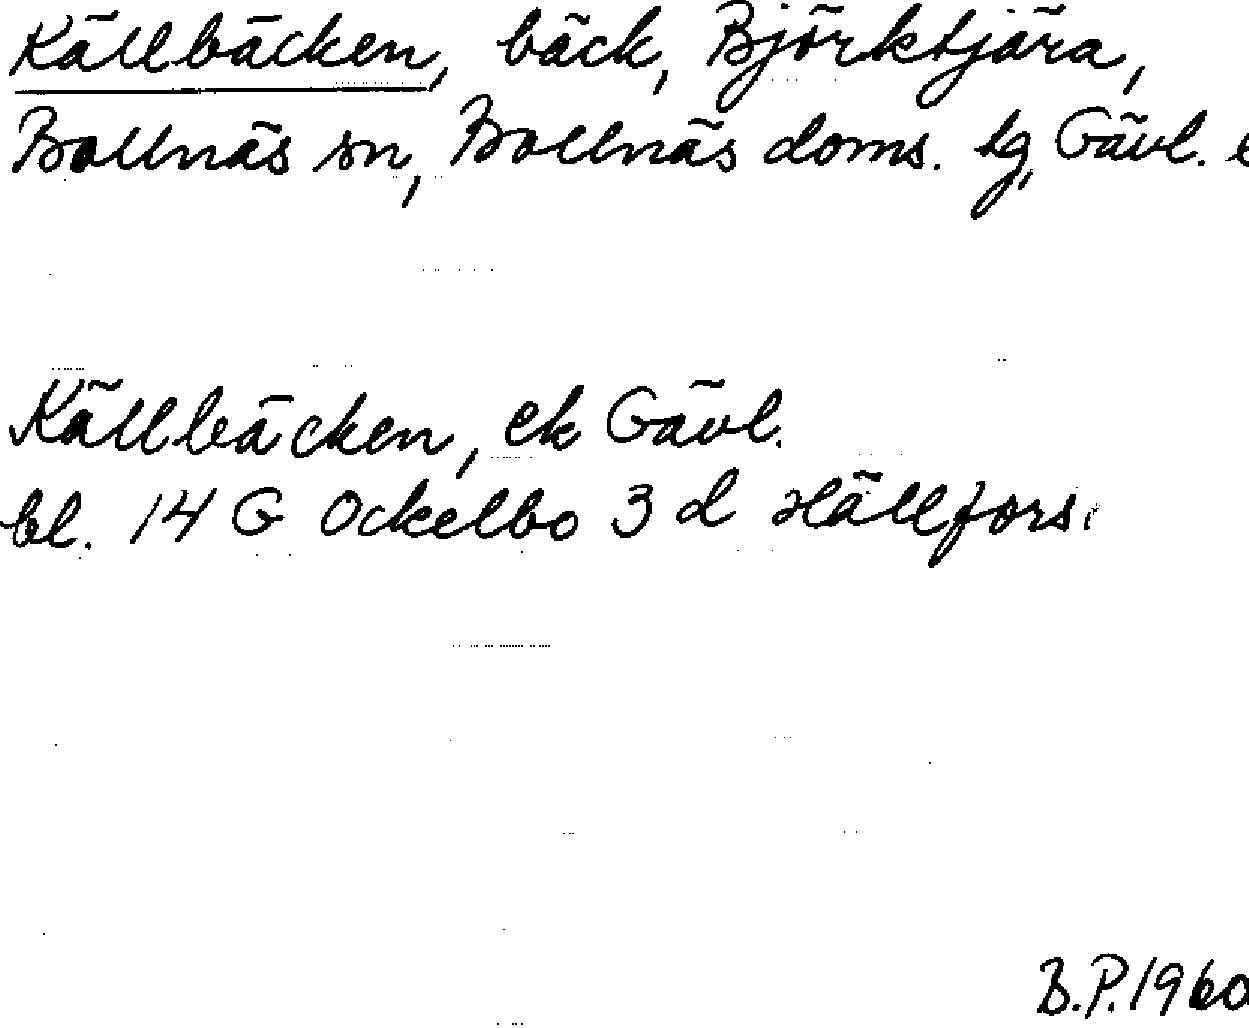 Källbäcken, bäck, Björktjära,
Bollnäs sn, Bollnäs doms. tg, Gävl.
Källbäcken, ek Gävl.
bl. 14 G Ockelbo 3 d Hällfors.
B.P. 1960